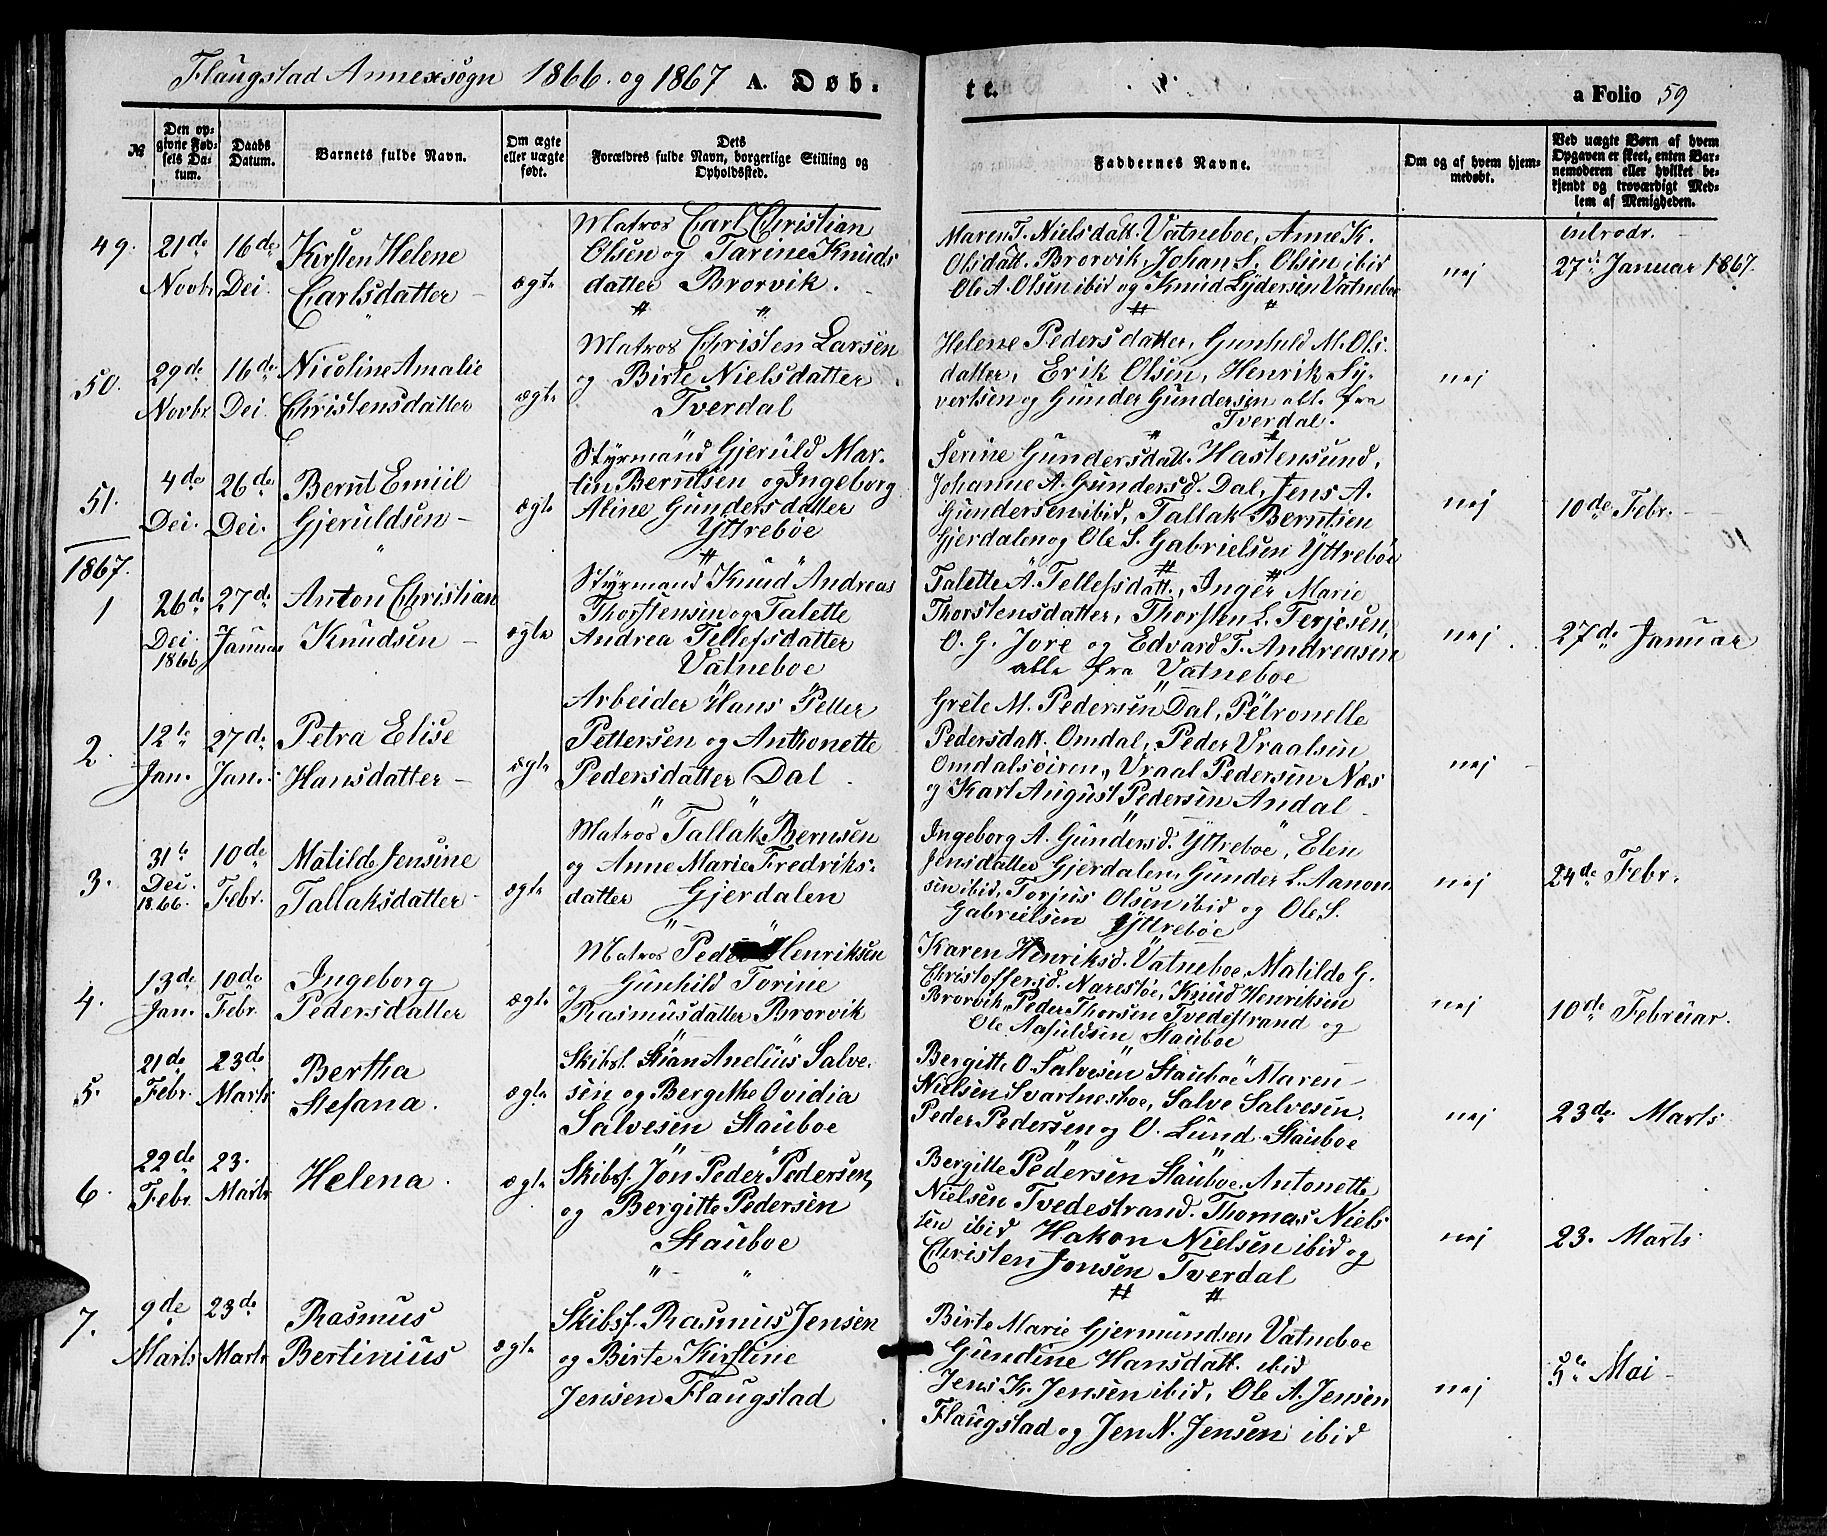 Flaugstad Annexsogn 1866. og 1867 A. Døb-
te. a Folio 59
№
Den op-
givne Fød-
sels Da-
tum.
Daabs
Datum.
Barnets fulde Navn.
Om ægte
eller uægte
født.
Dets
Forældres fulde Navn, borgerlige Stilling og
Opholdssted.
Faddernes Navne.
Om og af hvem hjem-
medøbt.
Ved uægte Børn af hvem
Opgaven er skeet, enten Bar-
nemoderen eller hvilket be-
kjendt og troværdigt Med-
lem af Menigheden.
49.
21de
Novbr
16de
Dei
Kirsten Helene
Carlsdatter
ægte
Matros Carl Christian
Olsen og Tarine Knuds
datter Brorvik.
Maren T. Nielsdatt. Vatneboe, Anne K.
Olsdatt. Brorvik, Johan S. Olsen ibid
Ole A. Olsen ibid og Knud Lydersen Vatneboe
nej
introdr.
27de Januar 1867.
50.
29de
Novbr.
16de
Dei.
Nicoline Amalie
Christensdatter
ægte
Matros Christen Larsen
og Birte Nielsdatter
Tverdal
Helene Pedersdatter, Gunhild M. Ols-
datter, Erik Olsen, Henrik Sy-
vertsen og Gunder Gundersen alle fra
Tverdal.
nej
51.
4de
Dei.
26de
Dei.
Bernt Emiil
Gjeruldsen
ægte
Styrmand Gjeruld Mar-
tin Berntsen og Ingeborg
Aline Gundersdatter
Yttrebøe
Serine Gundersdatt. Hastensund,
Johanne A. Gundersd. Dal, Jens A.
Gundersen ibid, Tallak Berntsen
Gjerdalen og Ole S. Gabrielsen Yttrebøe
nej
10de Febr.
1867.
1
26de
Dei
1866
27de
Januar
Anton Christian
Knudsen
ægte
Styrmand Knud Andreas
Thorstensen og Talette
Andrea Tellefsdatter
Vatneboe
Talette A. Tellefsdatt., Inger Marie
Thorstensdatter, Thorsten L. Terjesen,
O. G. Jore og Edvard T. Andreasen
alle fra Vatneboe
nej
27de Januar
2.
12te
Jan.
27de
Jan.
Petra Elise
Hansdatter
ægte
Arbeider Hans Petter
Pettersen og Anthonette
Pedersdatter Dal
Grete M. Pedersen Dal, Petronelle
Pedersdatt. Omdal, Peder Vraalsen
Omdalsøiren, Vraal Pedersen Næs
og Karl August Pedersen Andal
nej
3.
31te
Dei
1866.
10de
Febr.
Matilde Jensine
Tallaksdatter
ægte
Matros Tallak Bernsen
og Anne Marie Fredriks-
datter Gjerdalen
Ingeborg A. Gundersd. Yttreboe, Elen
Jensdatter Gjerdalen, Gunder L. Aanon-
sen ibid, Torjus Olsen ibid og Ole S.
Gabrielsen Yttrebøe
nej
24de Febr.
4.
13de
Jan.
10de
Febr.
Ingeborg
Pedersdatter
ægte
Matros Peder Henriksen
og Gunhild Torine
Rasmusdatter Brorvik
Karen Henriksd. Vatneboe, Matilde G.
Christoffersd. Narestøe, Knud Henriksen
Brorvik, Peder Thorsen Tvedestrand og
Ole Aasuldsen Stauboe
nej
10de Februar.
5.
21de
Febr.
23de
Marts
Bertha
Stefana.
ægte
Skibsf. Stian Anelius Salve-
sen og Bergithe Ovidia
Salvesen Stauboe
Bergitte O. Salvesen Stauboe Maren
Nielsen Svartnesboe, Salve Salvesen,
Peder Pedersen og O. Lund Stauboe
nej
23de Marts
6.
22de
Febr.
23.
Marts
Helena.
ægte
Skibsf. Jon Peder Pedersen,
og Bergitte Pedersen
Stauboe
Bergitte Pedersen Stauboe. Antonette
Nielsen Tvedestrand. Thomas Niels
sen ibid Hakon Nielsen ibid og
Christen Jonsen Tverdal
nej
23. Marts
7.
9de
Marts
23de
Marts
Rasmus
Bertinius
ægte
Skibsf. Rasmus Jensen
og Birte Kirstine
Jensen Flaugstad
Birte Marie Gjermundsen Vatneboe
Gundine Hansdatt. ibid
Jens K. Jensen ibid, Ole A. Jensen
Flaugstad og Jen N. Jensen ibid
nej
5te Mai